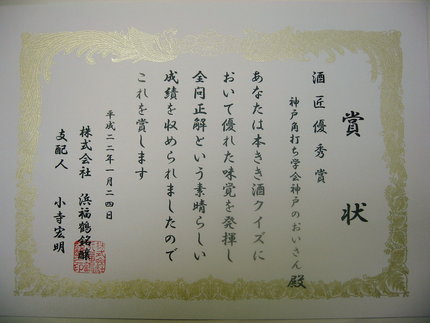 賞状
酒匠優秀賞
神戸角打ち学会神戸のおいさん殿
あなたは本きき酒クイズに
おいて優れた味覚を発揮し
全問正解という素晴らしい
成績を収められましたので
これを賞します
平成二二年一月二四日
株式会社 浜福鶴銘醸
支配人 小寺宏明